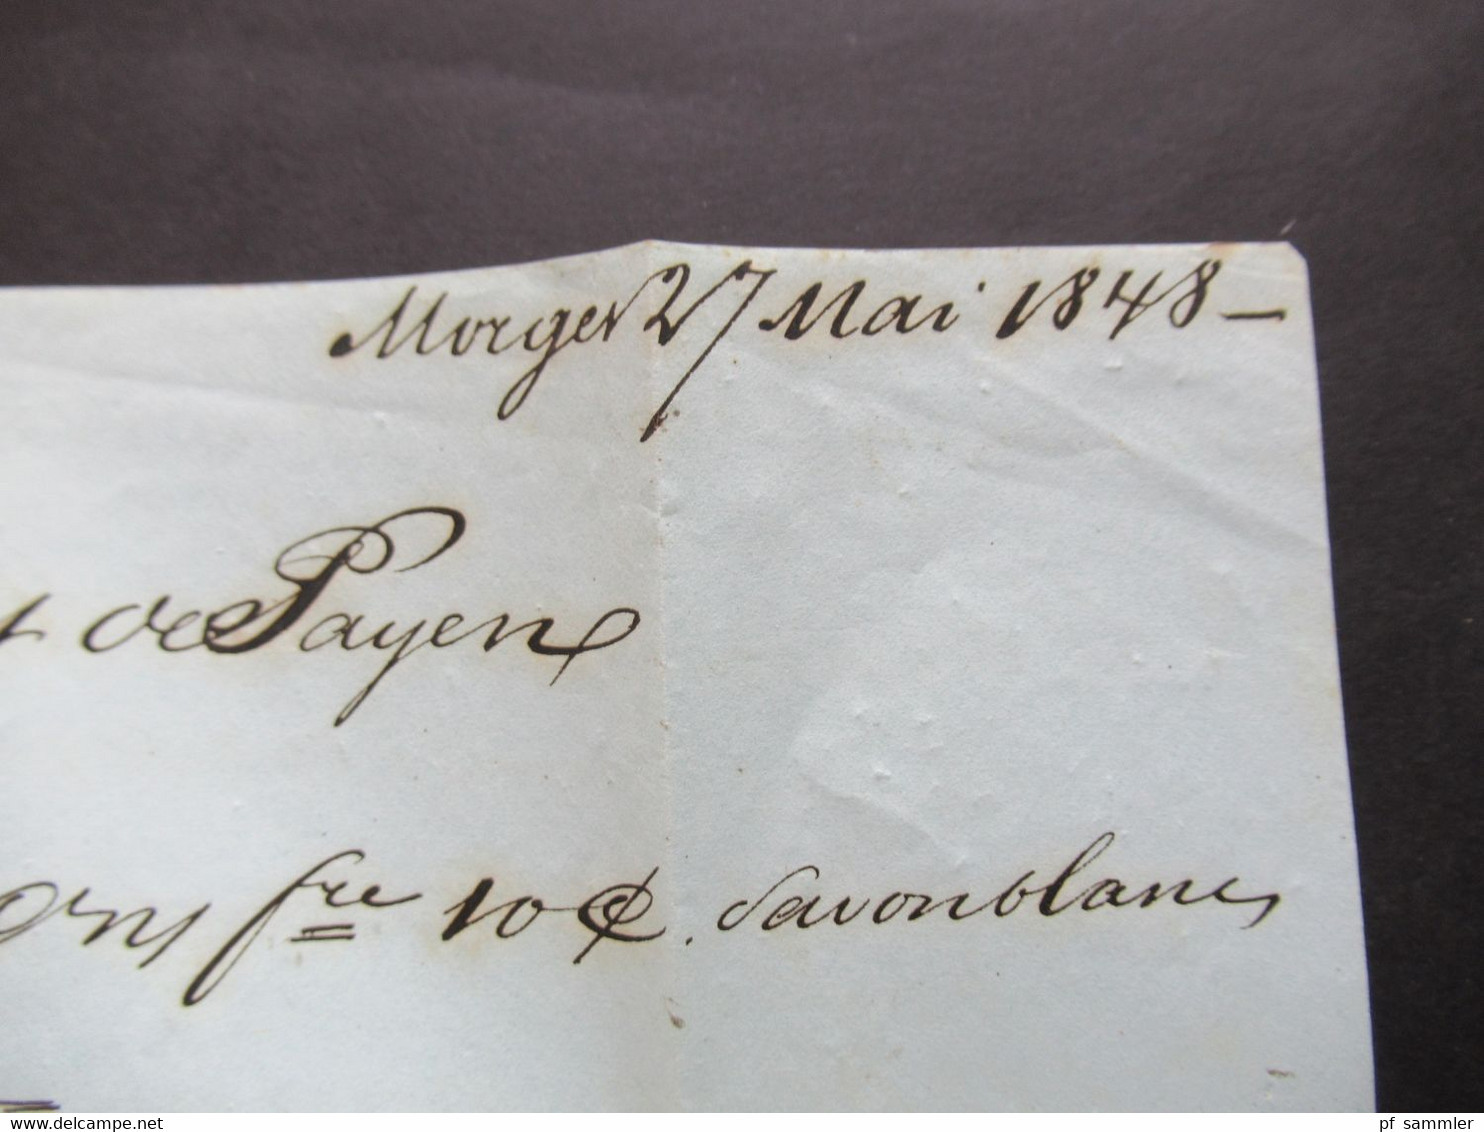 Morges 27 Mai 1848 –
de Payen
fre 10 ₵. Savon blanc
www.delcampe.net
pf sammler